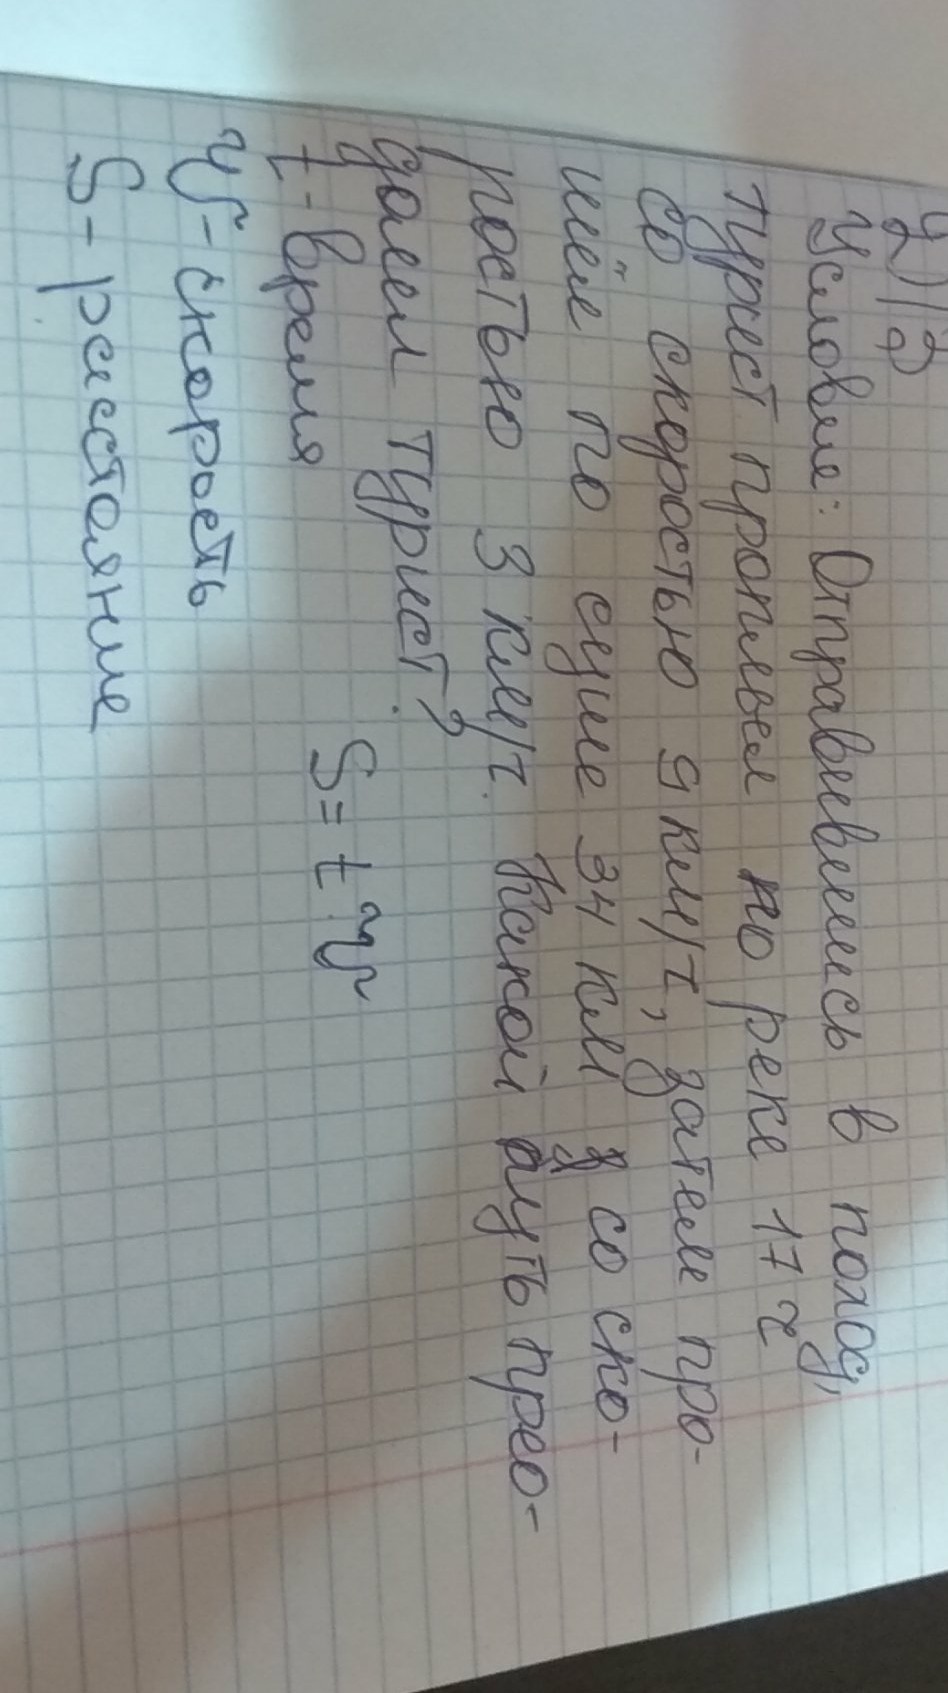 Условие: Отправившись в поход,
турист проплыл по реке 17 ч
со скоростью 9 км/ч, затем про-
шёл по суше 34 км со ско-
ростью 3 км/ч. Какой путь прео-
долел турист?
t - время S = t v
v - скорость
S - расстояние